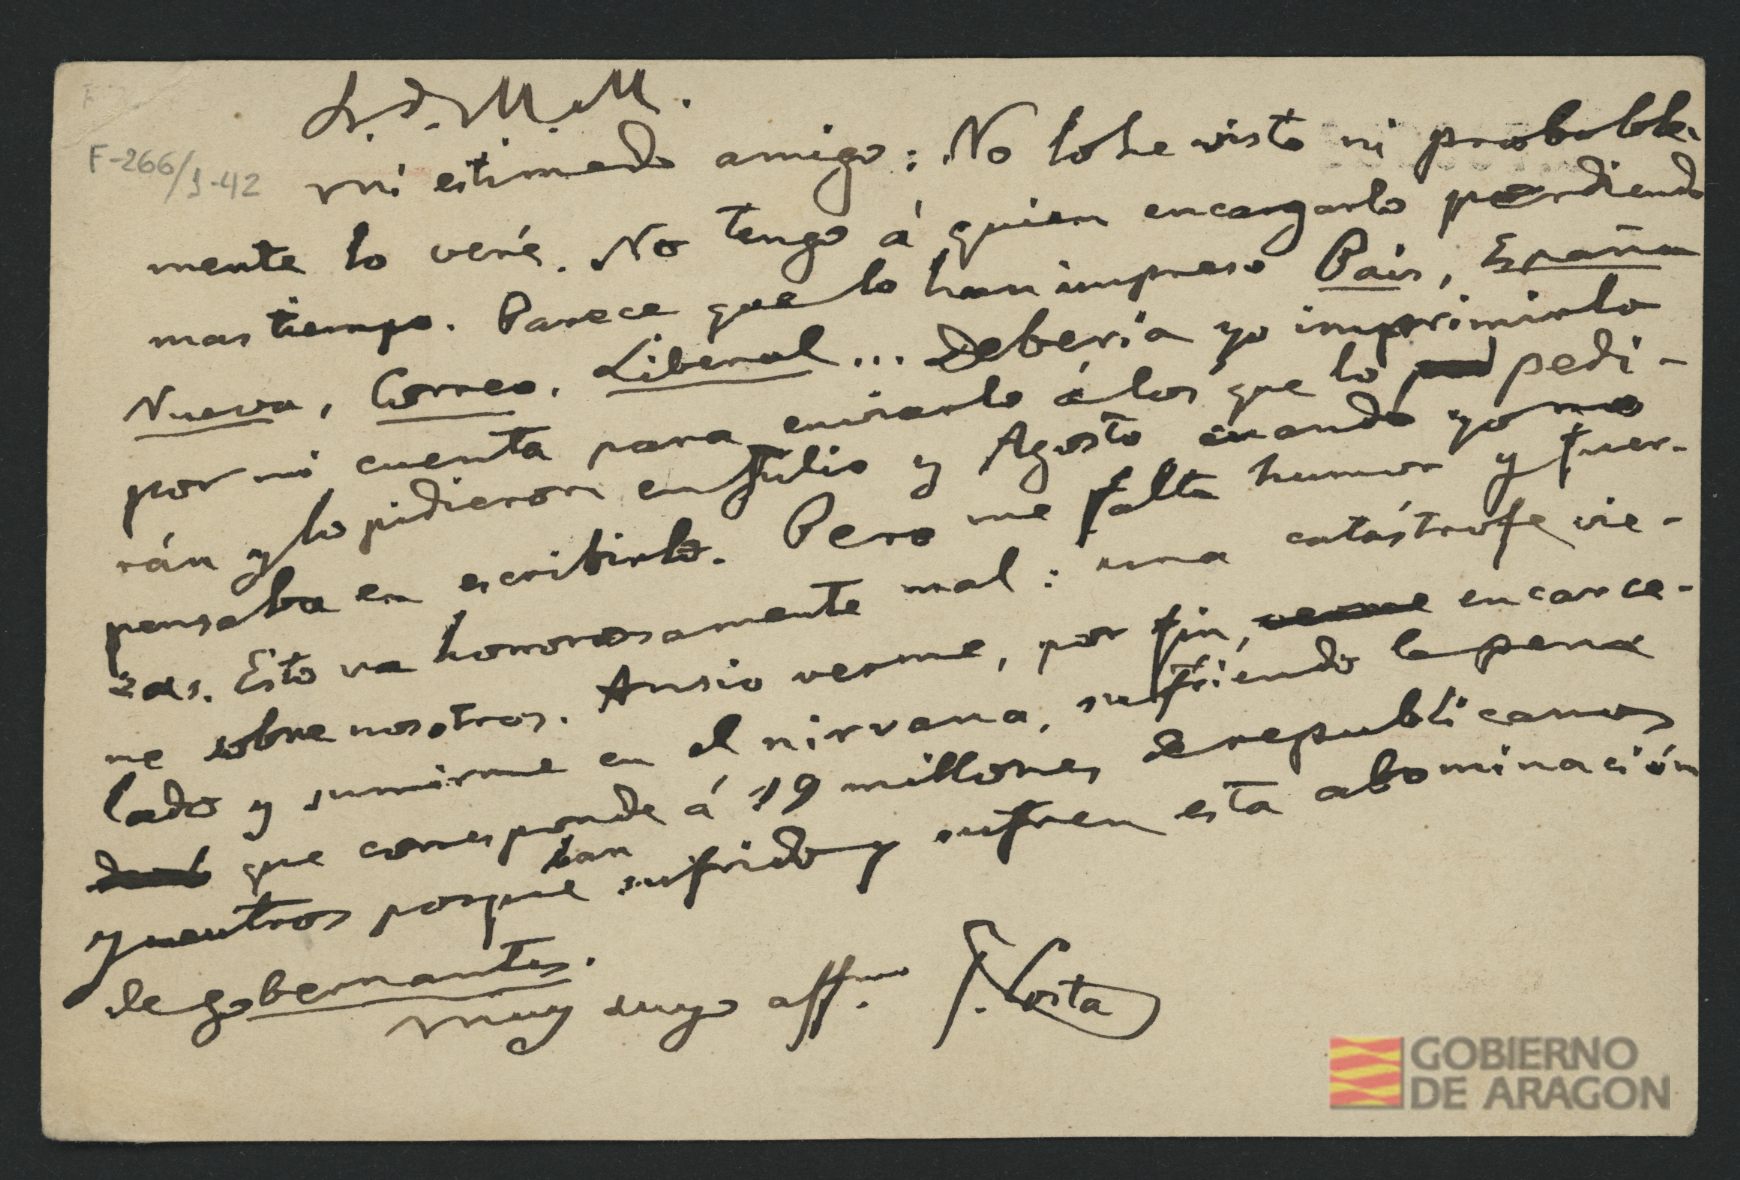 S. D. M. M.
F-266/1-42
Mi estimado amigo: No lo he visto ni probable-
mente lo veré. No tengo á quien encargarlo perdiendo
mas tiempo. Parece que lo han impreso País, España
Nueva, Correo, Liberal... Debería yo imprimirlo
por mi cuenta para enviarlo á los que lo pedi-
rán y lo pidieron en Julio y Agosto cuando yo no
pensaba en escribirlo. Pero me falta humor y fuer-
zas. Esto va horrorosamente mal: una catástrofe vie-
ne sobre nosotros. Ansio verme, por fin, verme encarce-
lado y sumirme en el nirvana, sufriendo la pena
que corresponde á 19 millones de republicanos
y neutros porque han sufrido y sufren esta abominación
de gobernantes.
Muy suyo affmo. J. Costa
GOBIERNO
DE ARAGON